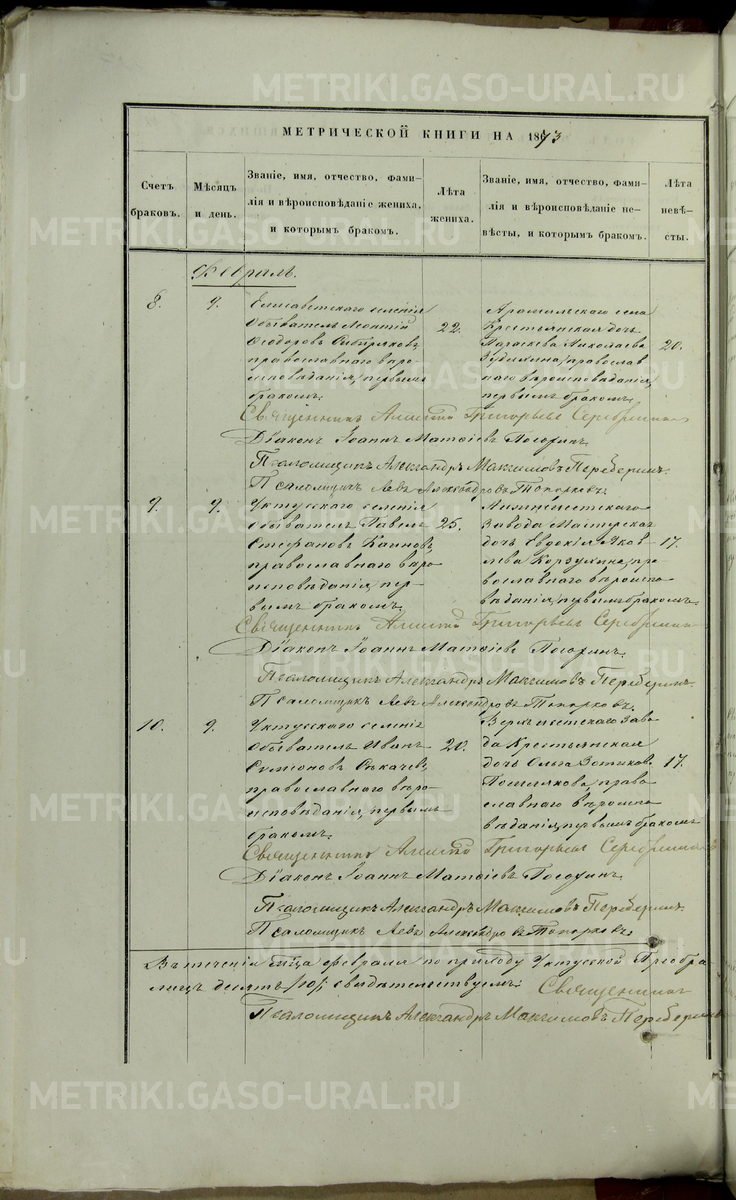 METRIKI.GASO-URAL.RU
МЕТРИЧЕСКОЙ КНИГИ НА 1873
Счетъ браковъ.
Мѣсяцъ и день.
Званіе, имя, отчество, фами-
лія и вѣроисповѣданіе жениха,
и которымъ бракомъ.
Лѣта жениха.
Званіе, имя, отчество, фами-
лія и вѣроисповѣданіе не-
вѣсты, и которымъ бракомъ.
Лѣта невѣ-
сты.
8.
9.
Елисаветскаго селенія
обыватель Леонтій
Ѳеодоровъ Сибиряковъ
православнаго вѣро-
исповѣданія, первымъ
бракомъ.
22.
Арамильскаго села
Крестьянская дочь
Николаева
православ
наго вѣроисповѣданія,
первымъ бракомъ.
20.
Священникъ Григорьевъ
Діаконъ Іоаннъ Матѳіевъ
Псаломщикъ Александръ Максимовъ Переберинъ.
Псаломщикъ Левъ Александровъ Топорковъ.
9.
9.
Уктусскаго селенія
обыватель Павелъ
Стефановъ
православнаго вѣро
исповѣданія, пер-
вымъ бракомъ.
25.
Завода Мастерская
дочь Евдокія Яков-
лева Корзухина, пра-
вославнаго вѣроиспо
вѣданія, первымъ бракомъ.
17.
Священникъ Григорьевъ
Діаконъ Іоаннъ Матѳіевъ
Псаломщикъ Александръ Максимовъ Переберинъ.
Псаломщикъ Левъ Александровъ Топорковъ.
10.
9.
Уктусскаго селенія
обыватель Иванъ
Симеоновъ
православнаго вѣро-
исповѣданія, первымъ
бракомъ.
20.
Верхъисетскаго Заво
да Крестьянская
дочь Ольга Зотикова
право
славнаго вѣроиспо
вѣданія, первымъ бракомъ
17.
Священникъ Григорьевъ
Діаконъ Іоаннъ Матѳіевъ
Псаломщикъ Александръ Максимовъ Переберинъ.
Псаломщикъ Левъ Александровъ Топорковъ.
Въ теченіи февраля по приходу Уктусской Преобра
десять /10/, свидѣтельствуемъ: Священникъ
Псаломщикъ Александръ Максимовъ Переберинъ